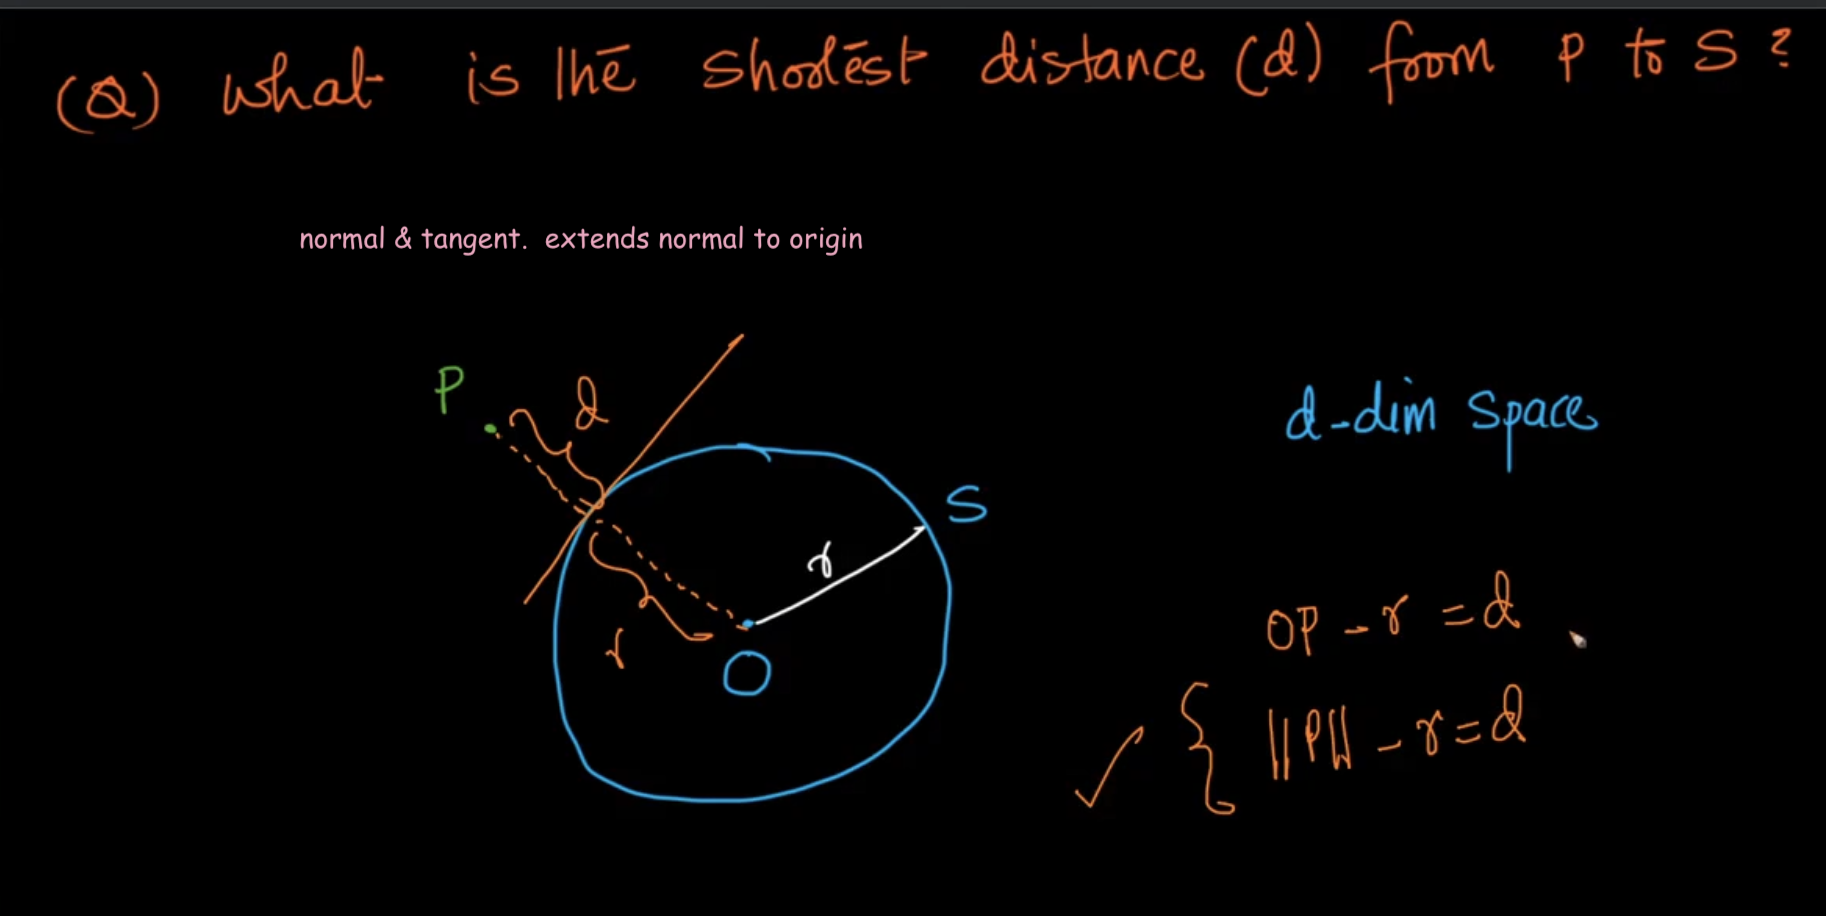 (Q) what is the shortest distance (d) from P to S ?
normal & tangent. extends normal to origin
P
d
d-dim space
S
r
r
O
OP - r = d
||P|| - r = d